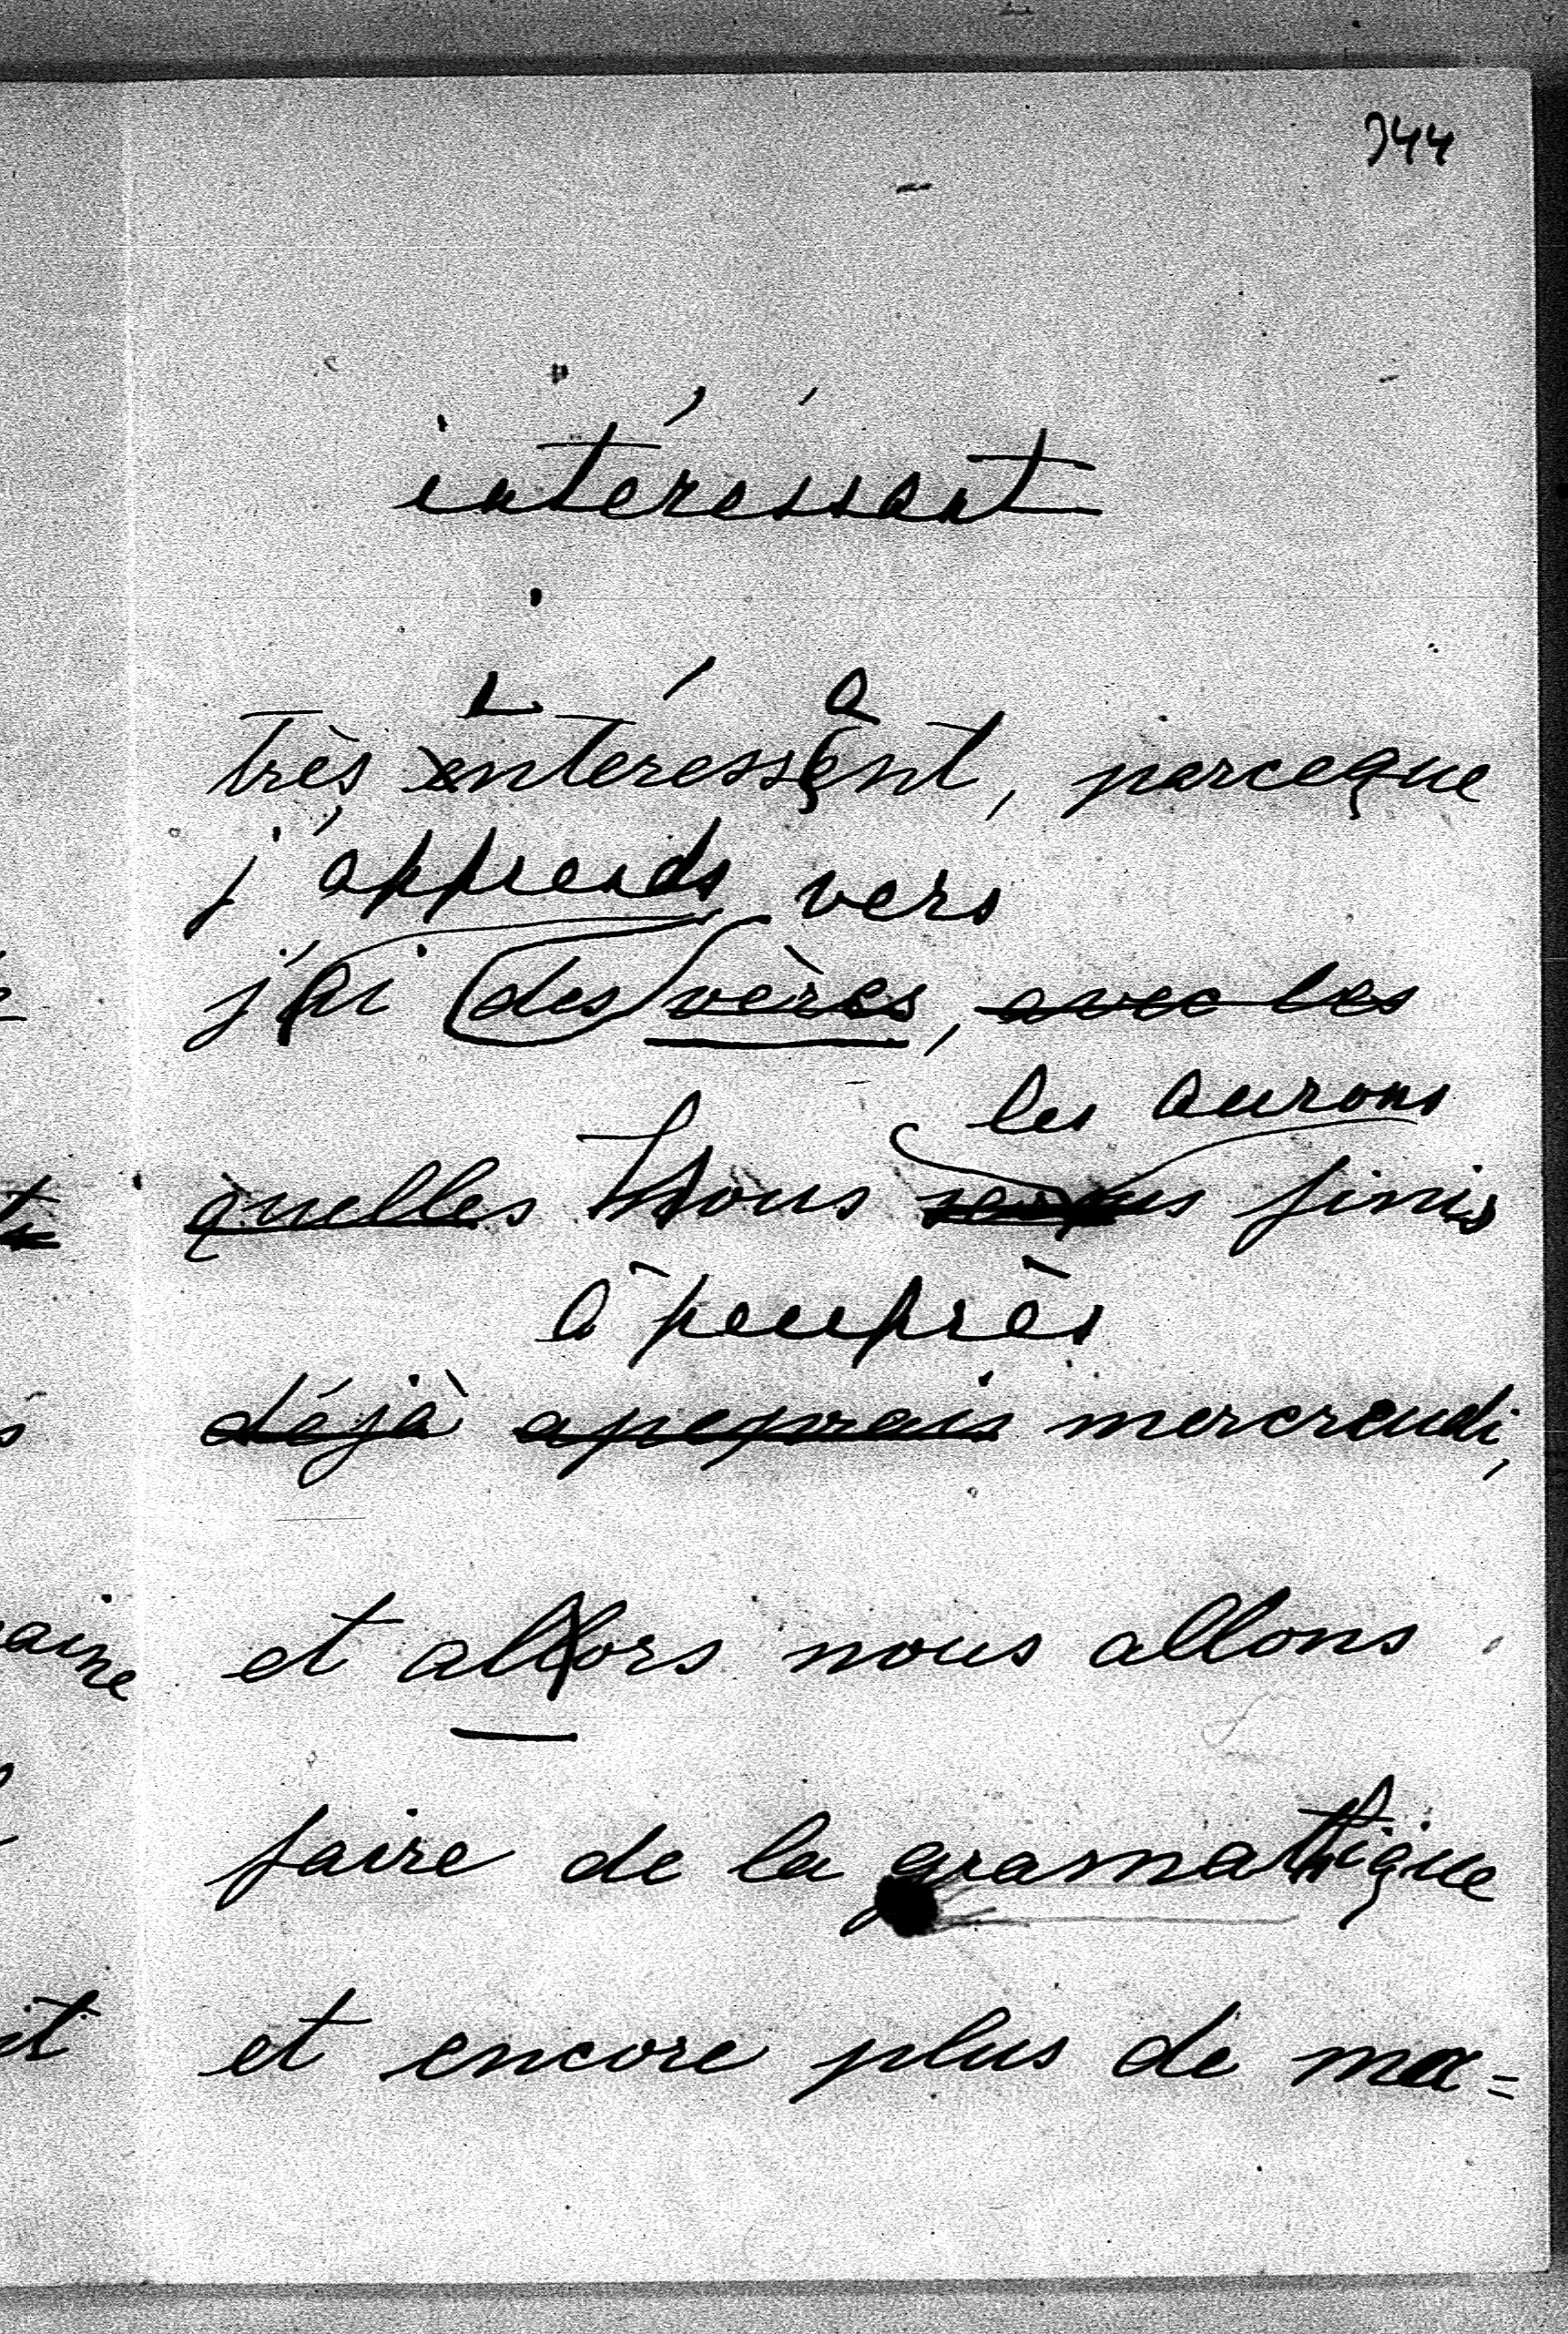 344
intéréssant
i a
très enteressent, parceque
j'apprends vers
j'ai des vères, avec les
les aurons
quelles nous finis
à peuprès
déjà apeqprais mercreudi,
et allors nous allons
faire de la gramatique
et encore plus de ma=